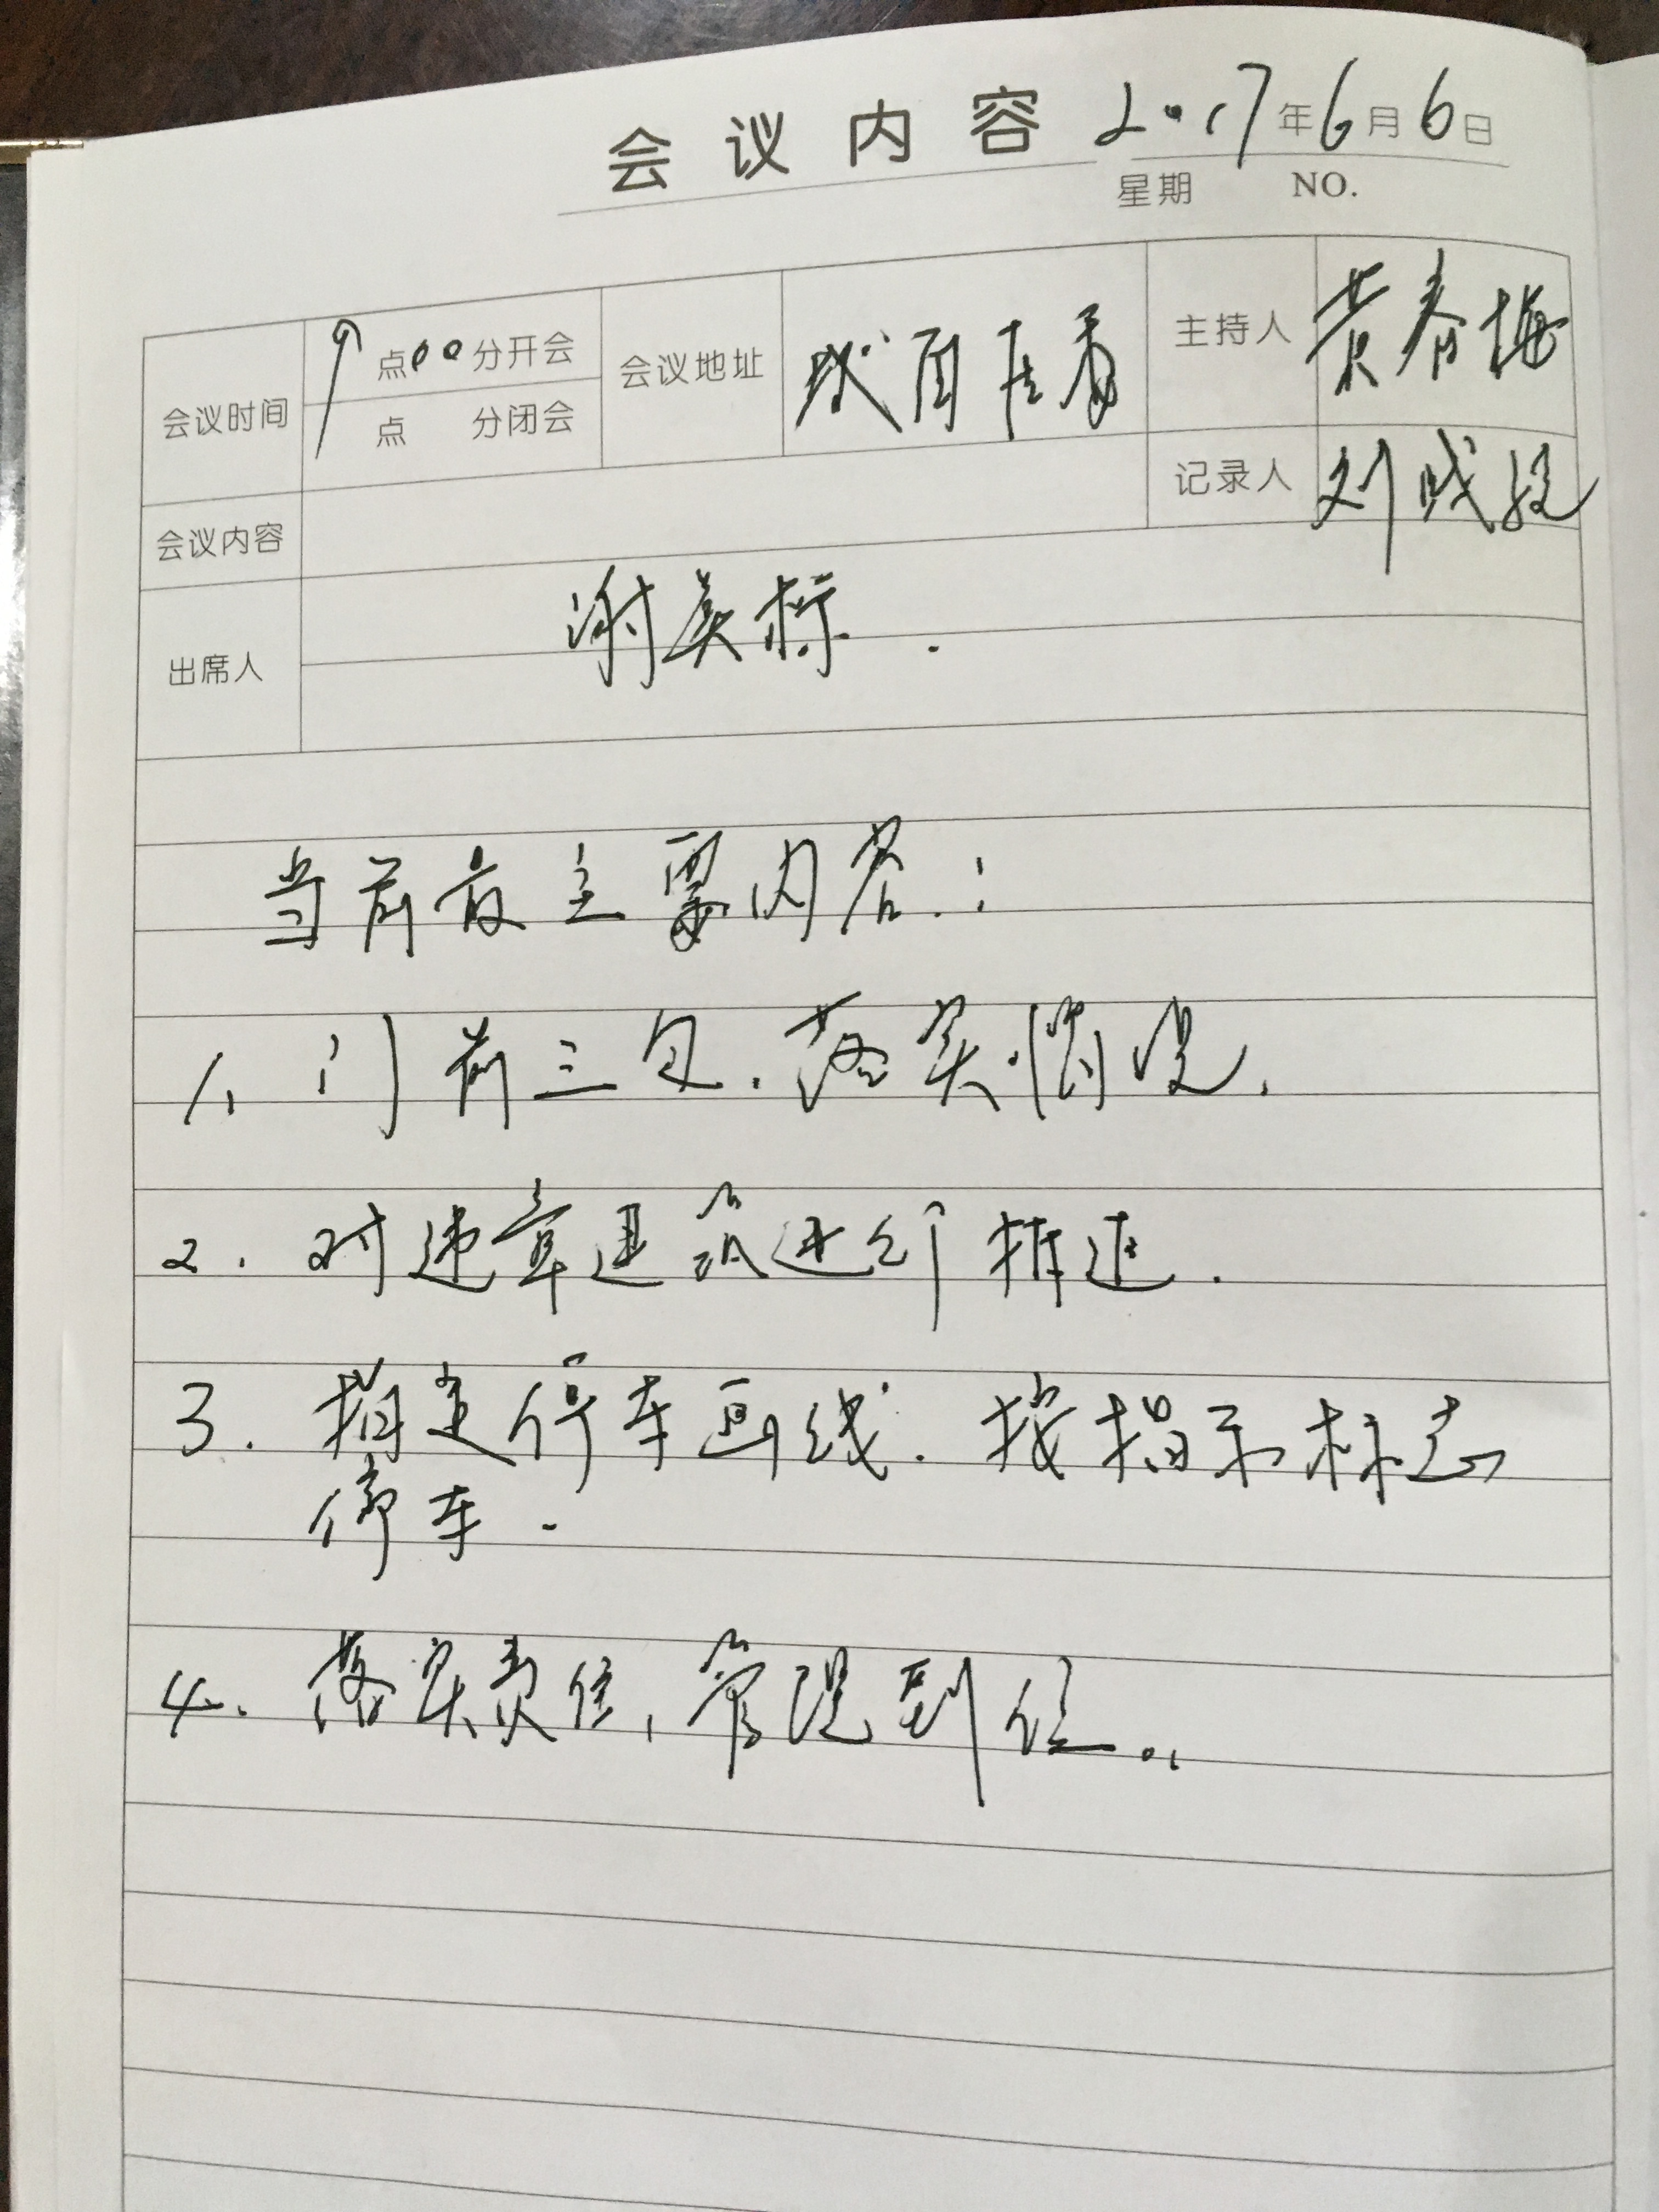 会议内容 2017年6月6日
星期 NO.
会议时间 9点00分开会
点 分闭会
会议地址 城西居委
主持人 黄春梅
记录人 刘成
会议内容
出席人 谢美标.
当前最主要内容:
1、门前三包.落实情况.
2.对违章建筑进行推进.
3.指定停车画线.按指示标志
停车.
4.落实责任,管理到位.